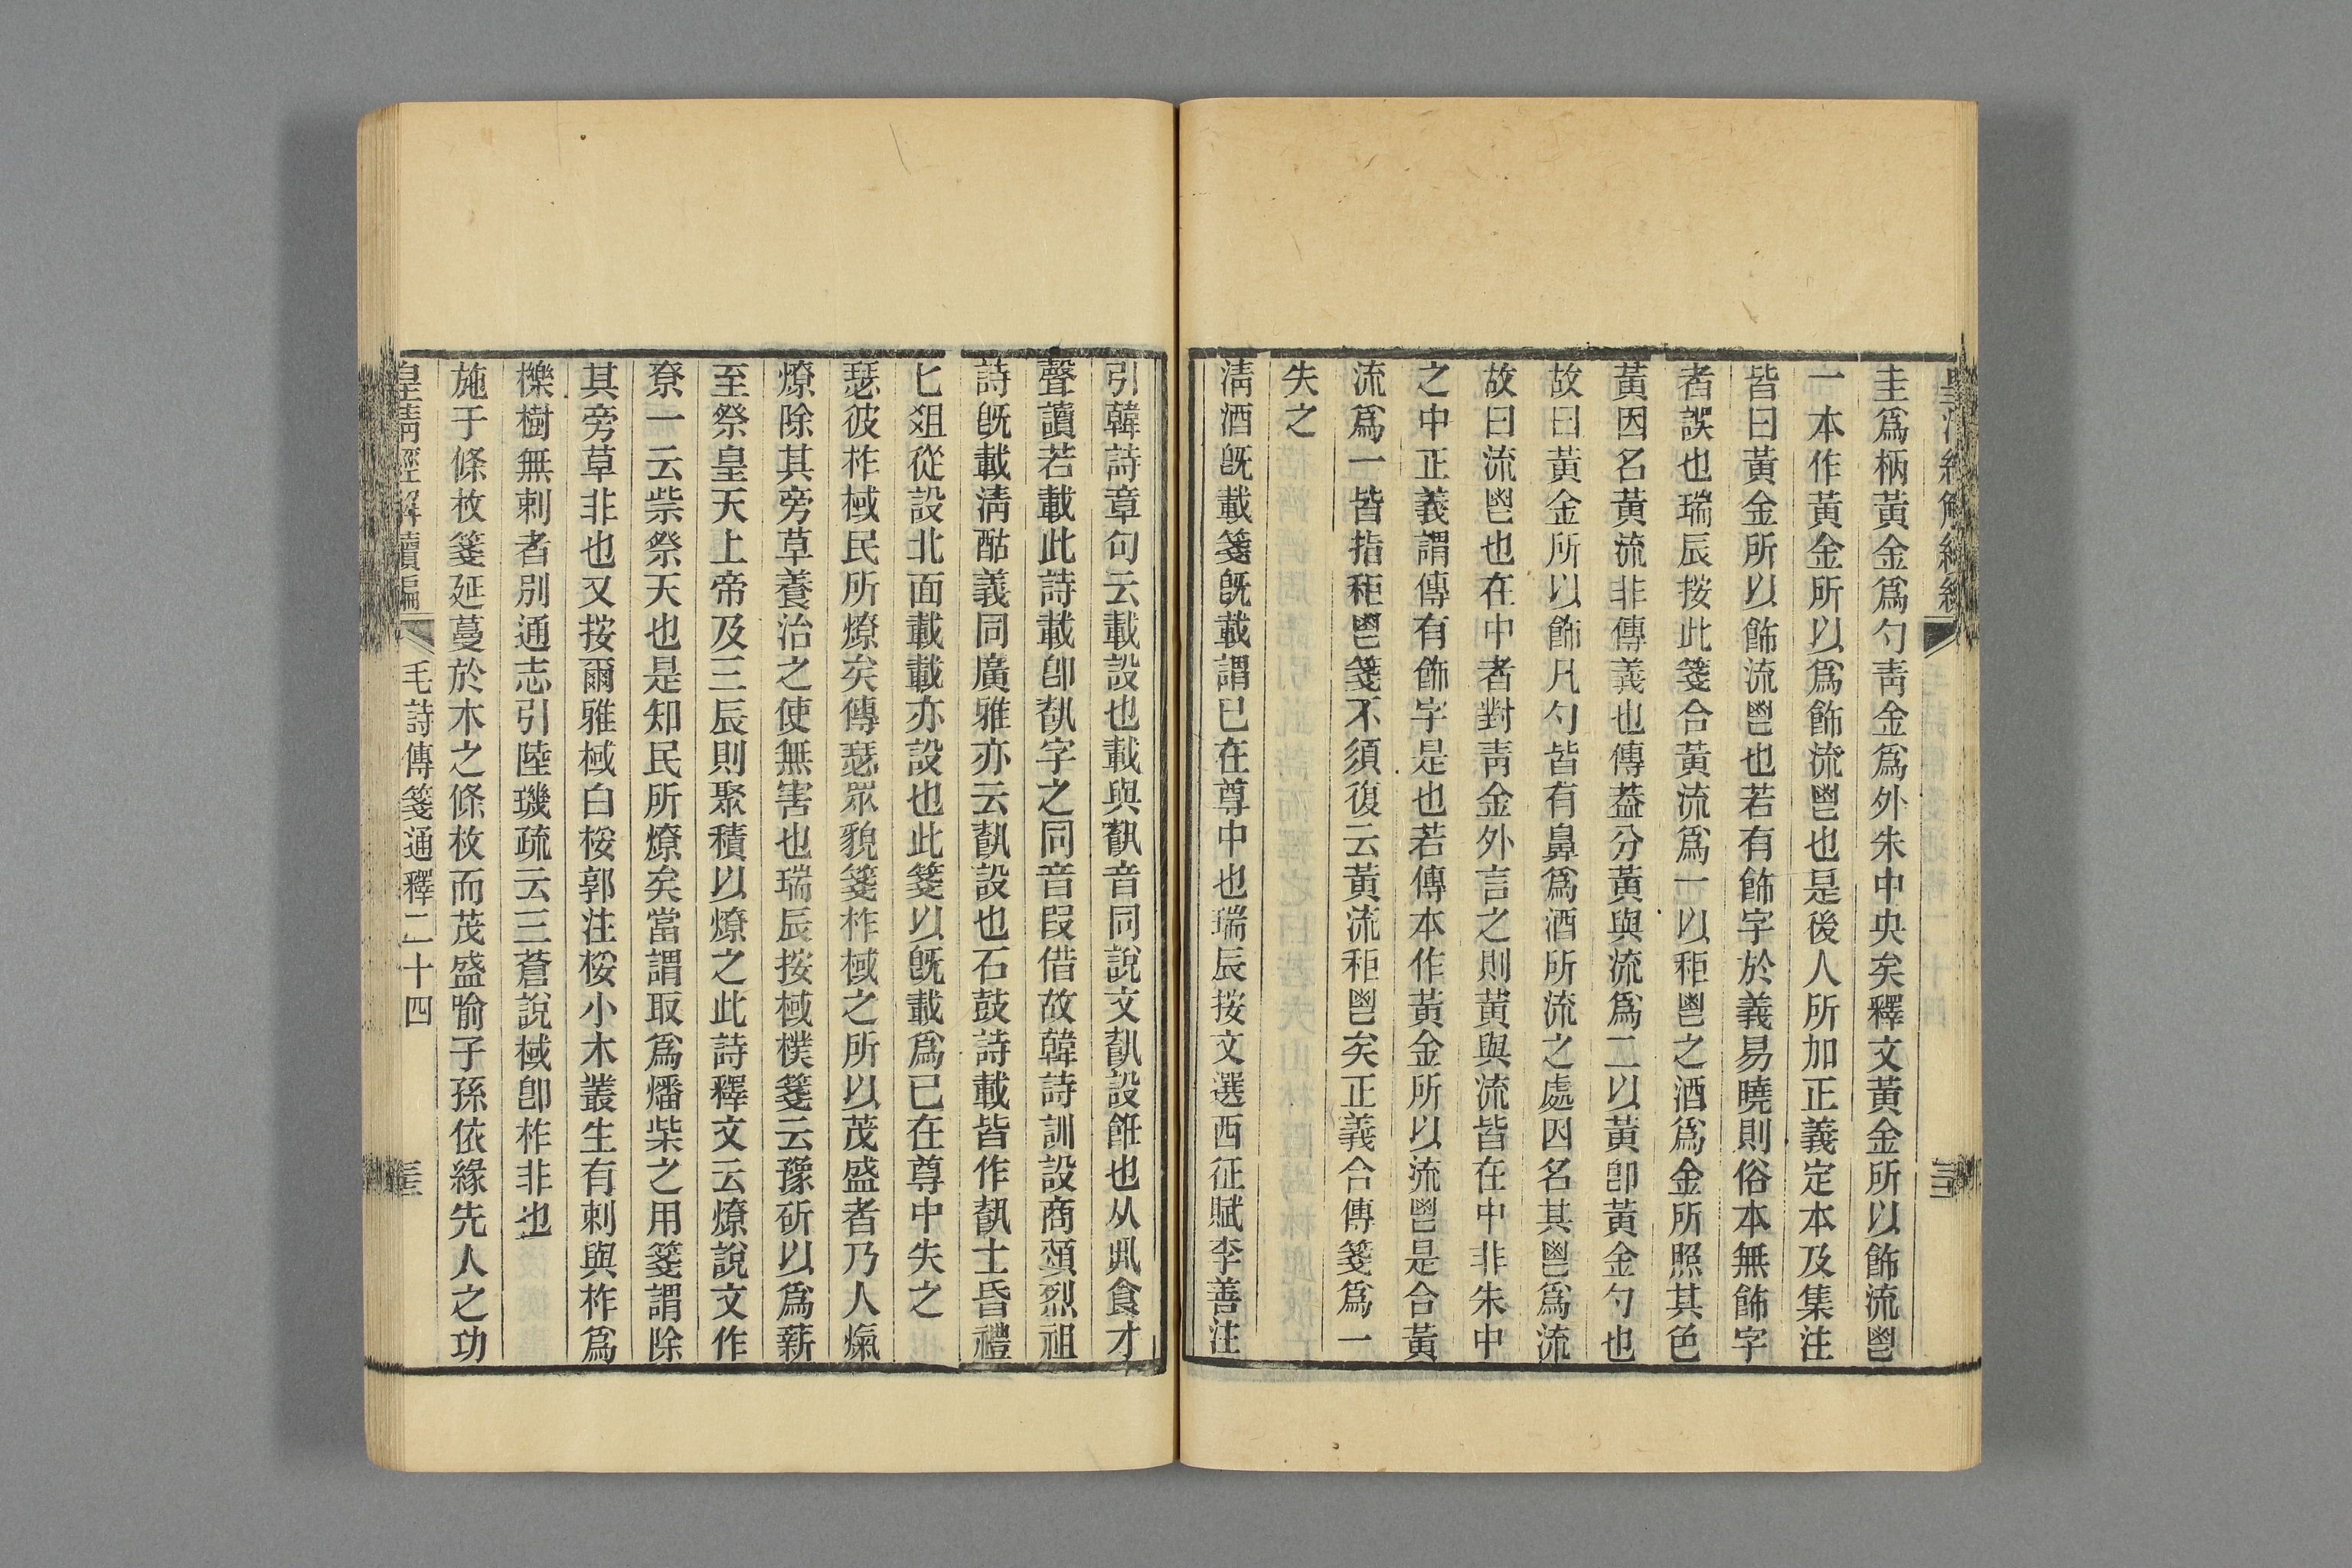 圭爲柄黃金爲勺靑金爲外朱中央矣釋文黃金所以飾流鬯
一本作黃金所以爲飾流鬯也是後人所加正義定本及集注
皆曰黃金所以飾流鬯也若有飾字於義易曉則俗本無飾字
者誤也瑞辰按此箋合黃流爲一以秬鬯之酒爲金所照其色
黃因名黃流非傳義也傳葢分黃與流爲二以黃卽黃金勺也
故曰黃金所以飾凡勺皆有鼻爲酒所流之處因名其鬯爲流
故曰流鬯也在中者對靑金外言之則黃與流皆在中非朱中
之中正義謂傳有飾字是也若傳本作黃金所以流鬯是合黃
流爲一皆指秬鬯箋不須復云黃流秬鬯矣正義合傳箋爲一
失之
淸酒旣載箋旣載謂已在尊中也瑞辰按文選西征賦李善注
引韓詩章句云載設也載與𩚪音同說文𩚪設飪也从丮食才
聲讀若載此詩載卽𩚪字之同音叚借故韓詩訓設商頌烈祖
詩旣載淸酤義同廣雅亦云𩚪設也石鼓詩載皆作𩚪士昏禮
匕俎從設北面載載亦設也此箋以旣載爲已在尊中失之
瑟彼柞棫民所燎矣傳瑟眾貌箋柞棫之所以茂盛者乃人熂
燎除其旁草養治之使無害也瑞辰按棫樸箋云豫斫以爲薪
至祭皇天上帝及三辰則聚積以燎之此詩釋文云燎說文作
尞一云祡祭天也是知民所燎矣當謂取爲燔柴之用箋謂除
其旁草非也又按爾雅棫白桵郭注桵小木叢生有刺與柞爲
櫟樹無刺者別通志引陸璣疏云三蒼說棫卽柞非也
施于條枚箋延蔓於木之條枚而茂盛喻子孫依緣先人之功
皇淸經解續編 毛詩傳箋通釋二十四